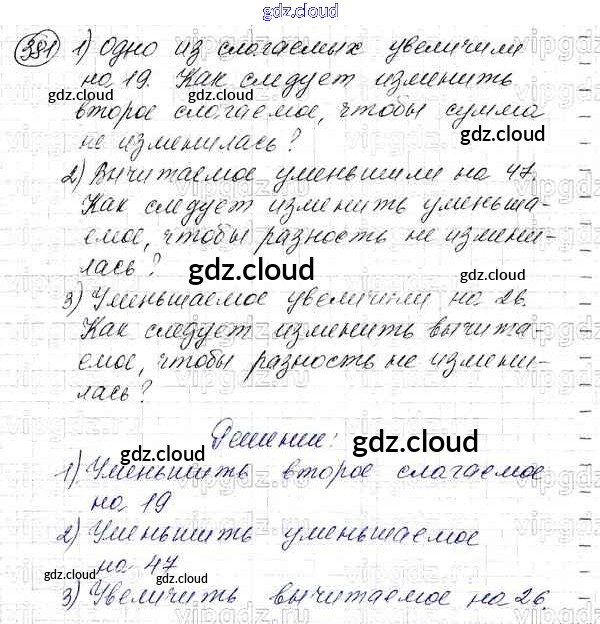 gdz.cloud
381 1) Одно из слагаемых увеличили
на 19. Как следует изменить
gdz.cloud gdz.cloud gdz.cloud
второе слагаемое, чтобы сумма
не изменилась?
gdz.cloud gdz.cloud
2) Вычитаемое уменьшили на 47.
Как следует изменить уменьша-
емое, чтобы разность не измени-
лась?
gdz.cloud gdz.cloud
3) Уменьшаемое увеличили на 26.
Как следует изменить вычита-
емое, чтобы разность не измени-
лась?
Решение:
gdz.cloud
1) Уменьшить второе слагаемое
на 19
2) Уменьшить уменьшаемое
на 47
3) Увеличить вычитаемое на 26.